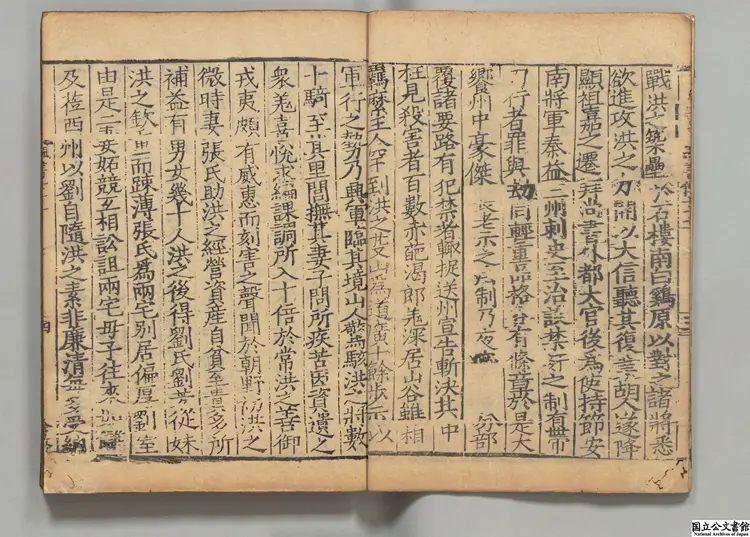 戰洪乃築壘於石樓南白鷄原以對之諸將悉
欲進攻洪乃開以大信聽其復業胡人遂降
顯祖喜加之遷拜尚書外都大官後爲使持節安
南將軍秦益二州刺史至治設禁奸之制有帶
刀行者罪與劫同輕重品格各有條章於是大
饗州中豪傑長老示之法制乃夜密分部
覆諸要路有犯禁者輒捉送州宣告斬決其中
枉見殺害者百數赤葩渴郎羌深居山谷雖相
羈縻王人罕到洪之芟山爲道廣十餘步示以
軍行之勢乃興軍臨其境山人驚駭洪之將數
十騎至其里閭撫其妻子問所疾苦因資遺之
衆羌喜悅求編課調所入十倍於常洪之善御
戎夷頗有威惠而刻害之聲聞於朝野初洪之
微時妻張氏助洪之經營資產自貧至貴多所
補益有男女幾十人洪之後得劉氏劉芳從妹
洪之欽重而疎薄張氏爲兩宅別居偏厚劉室
由是二妻妬競互相訟詛兩宅母子往來如讎
及莅西州以劉自隨洪之素非廉清每多受納
四
国立公文書館
National Archives of Japan